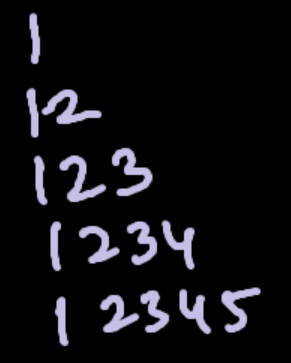 1
12
123
1234
12345